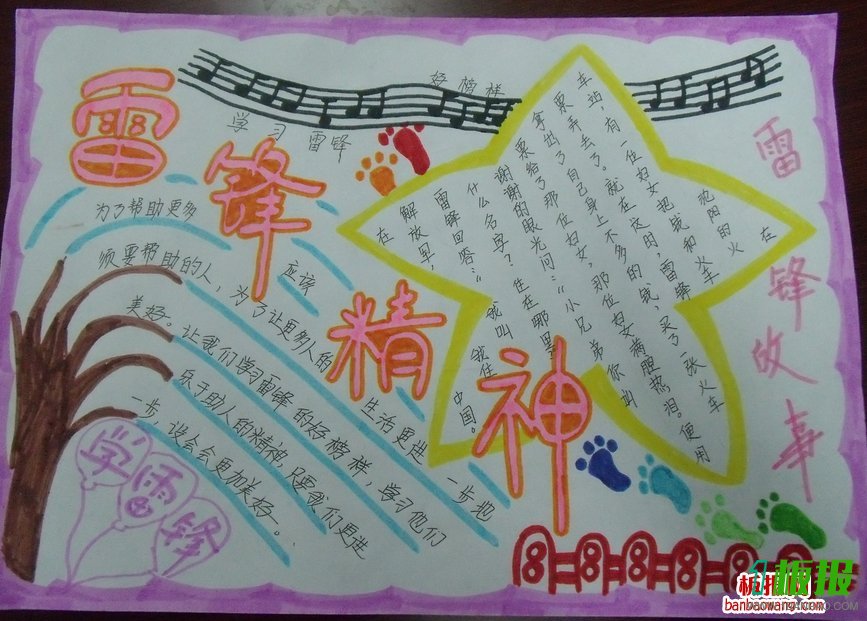 雷锋精神
学习雷锋
好榜样
为了帮助更多
须要帮助的人，为了让更多人的
应该
生活更进
一步地
美好。让我们学习雷锋的好榜样，学习他们
乐于助人的精神，只要我们更进
一步，设会会更加美好。
在
沈阳的火
车站，有一位妇女把钱和火车
票弄丢了。就在这时，雷锋
拿出了自己身上不多的钱，买了一张火车
票给了那位妇女，那位妇女满腔热泪。便用
谢谢的眼光问："小兄弟你叫
什么名字？住在哪里
雷锋回答："我叫
解放军，我住
在
中国。
雷锋故事
学雷锋
板报
banbaowang.com